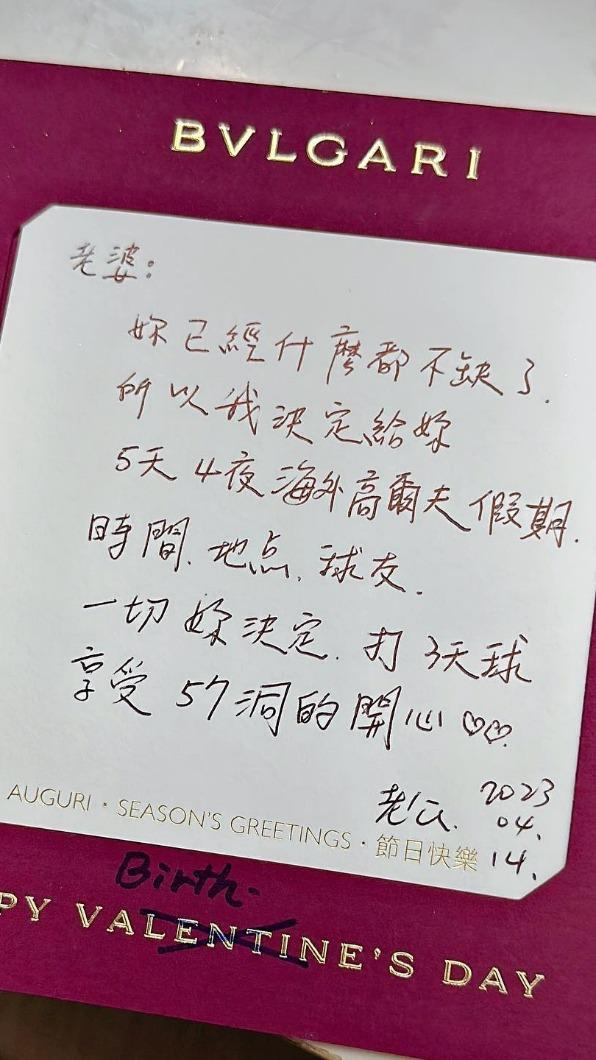 BVLGARI
老婆：
妳已經什麼都不缺了.
所以我決定給妳
5天4夜海外高爾夫假期.
時間.地点.球友.
一切妳決定.打3天球
享受57洞的開心♡♡.
老公. 2023
04.
14.
AUGURI · SEASON'S GREETINGS · 節日快樂
Birth-
PY VALENTINE'S DAY